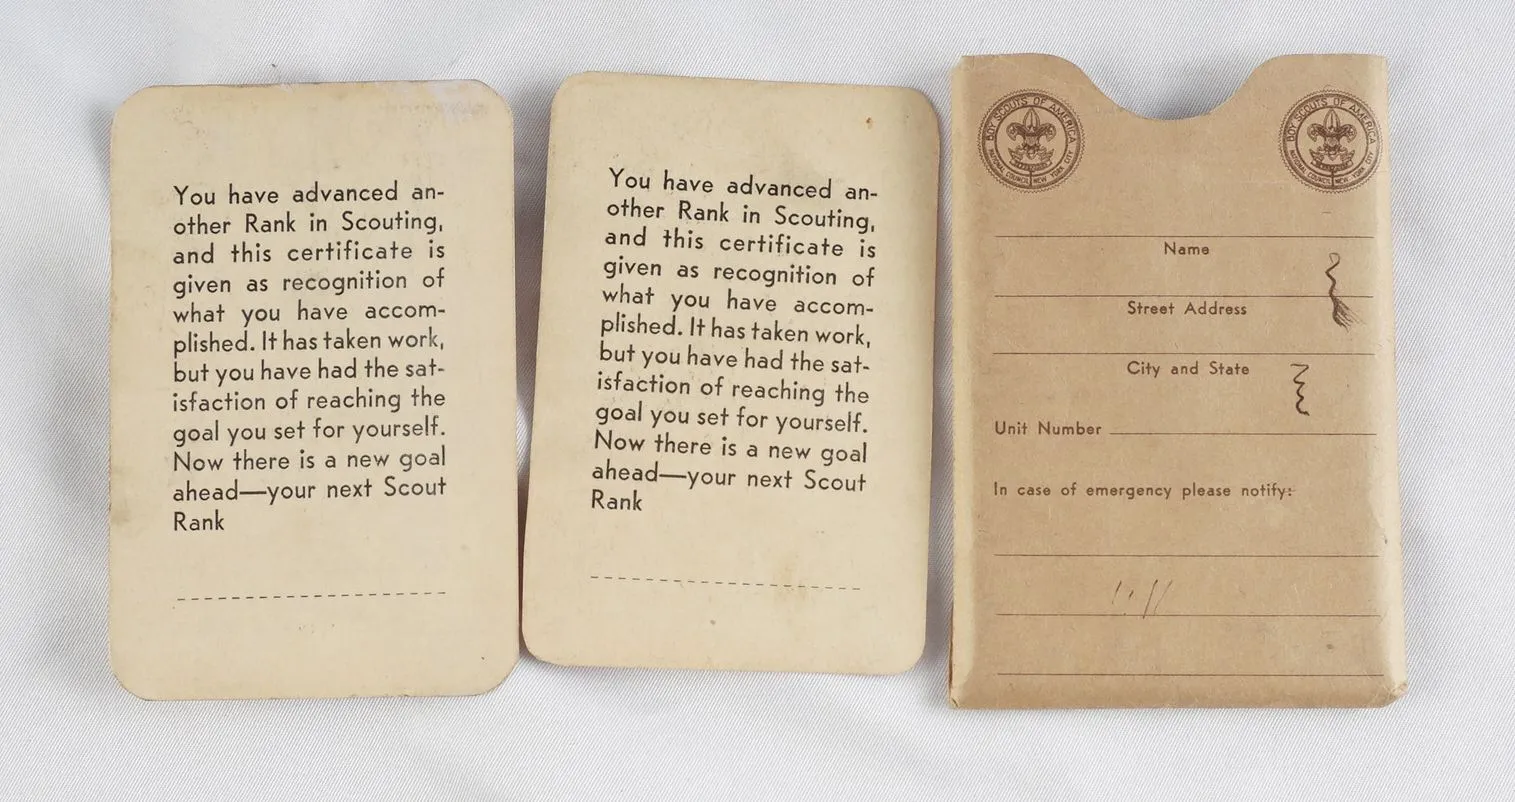 You have advanced an-
other Rank in Scouting,
and this certificate is
given as recognition of
what you have accom-
plished. It has taken work,
but you have had the sat-
isfaction of reaching the
goal you set for yourself.
Now there is a new goal
ahead—your next Scout
Rank
You have advanced an-
other Rank in Scouting,
and this certificate is
given as recognition of
what you have accom-
plished. It has taken work,
but you have had the sat-
isfaction of reaching the
goal you set for yourself.
Now there is a new goal
ahead—your next Scout
Rank
BOY SCOUTS OF AMERICA
NATIONAL COUNCIL NEW YORK CITY
BOY SCOUTS OF AMERICA
NATIONAL COUNCIL NEW YORK CITY
Name
Street Address
City and State
Unit Number
In case of emergency please notify: